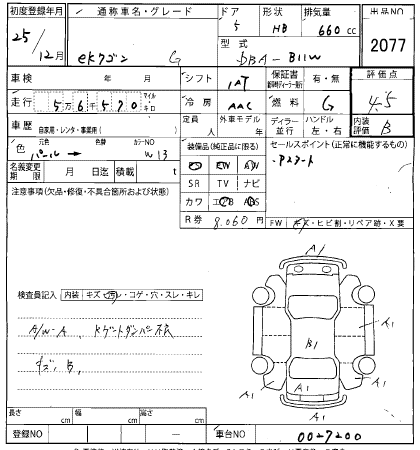 初度登録年月 通称車名・グレード ドア 形状 排気量 出品NO
25/12月 eKワゴン G 5 HB 660cc 2077
型式 DBA-B11W
車検 年 月 シフト IAT 保証書 有・無 評価点
走行 5万6千570 マイル・キロ 冷房 AAC 燃料 G 4.5
車歴 自家用・レンタ・事業用( ) 定員 人 外車モデル 年 ディーラー・並行 ハンドル 左・右 内装評価 B
色 元色 パール 色替 カラーNO W13
装備品(純正品に限る) セールスポイント(正常に機能するもの)
・Pスタート
名義変更期限 月 日迄 積載 t
SR TV ナビ
注意事項(欠品・修復・不具合箇所および状態)
カワ
R券 8,060円
FW キズ・ヒビ割・リペア跡・X要
A1
検査員記入 内装 キズ・汚レ・コゲ・穴・スレ・キレ
A/W-A, Kゲートダンパー不良
キズ, B,
B1
A1 A1
A1 A1 A1
A1
長さ cm 幅 cm 高さ cm
登録NO 車台NO 0027200